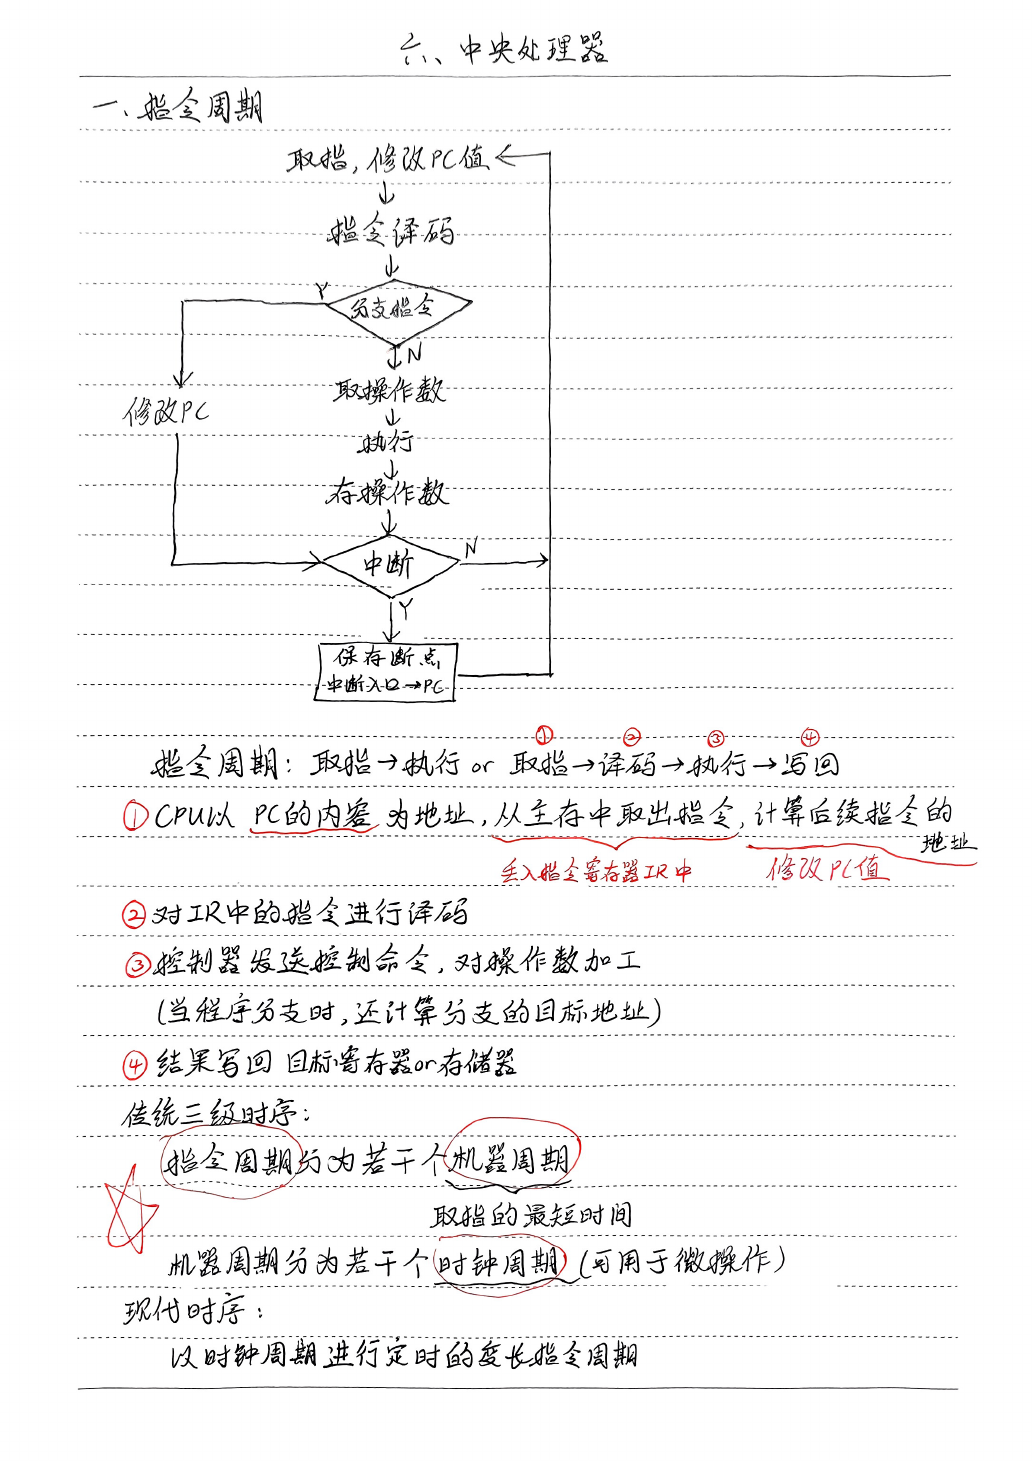 六、中央处理器
一、指令周期
取指,修改PC值
指令译码
Y
分支指令
N
取操作数
修改PC
执行
存操作数
中断
N
Y
保存断点
中断入口→PC
① ② ③ ④
指令周期: 取指→执行 or 取指→译码→执行→写回
①CPU以 PC的内容 为地址,从主存中取出指令,计算后续指令的
地址
丢入指令寄存器IR中 修改PC值
②对IR中的指令进行译码
③控制器发送控制命令,对操作数加工
(当程序分支时,还计算分支的目标地址)
④结果写回 目标寄存器or存储器
传统三级时序:
指令周期分为若干个机器周期
取指的最短时间
机器周期分为若干个时钟周期(可用于微操作)
现代时序:
以时钟周期进行定时的变长指令周期